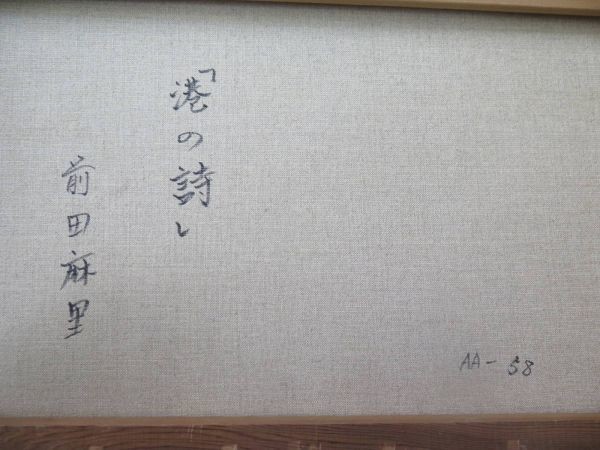 「港の詩」
前田麻里
AA-58